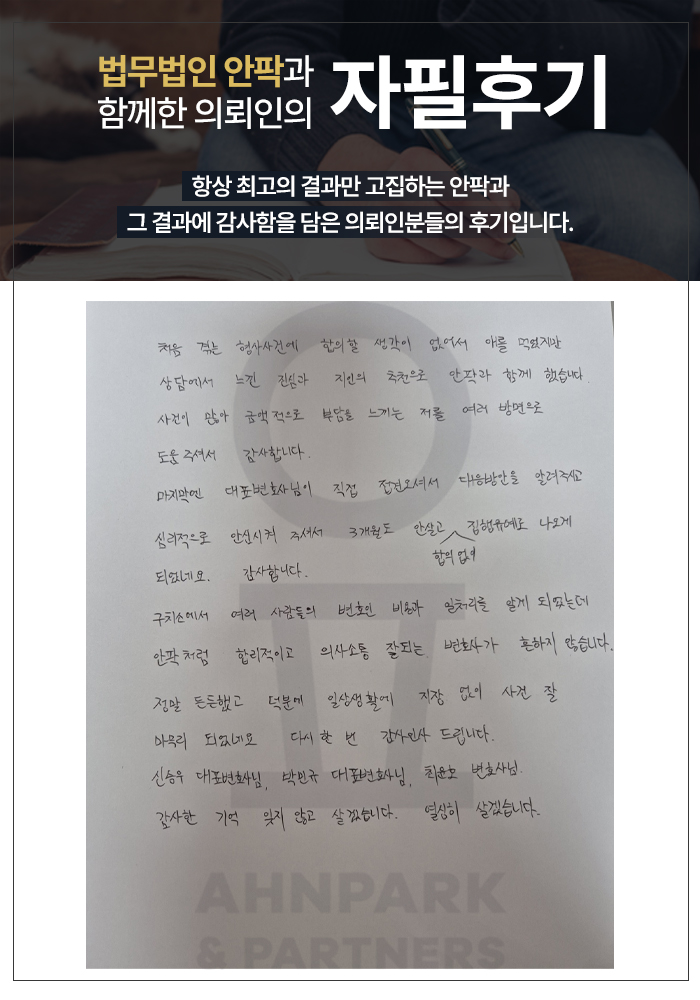 법무법인 안팍과
함께한 의뢰인의
자필후기
항상 최고의 결과만 고집하는 안팍과
그 결과에 감사함을 담은 의뢰인분들의 후기입니다.
처음 겪는 형사사건에 합의할 생각이 없어서 애를 먹었지만
상담에서 느낀 진심과 지인의 추천으로 안팍과 함께 했습니다.
사건이 많아 금액적으로 부담을 느끼는 저를 여러 방면으로
도움주셔서 감사합니다.
마지막엔 대표변호사님이 직접 접견오셔서 대응방안을 알려주시고
심리적으로 안심시켜 주셔서 3개월도 안살고 집행유예로 나오게
합의 없이
되었네요. 감사합니다.
구치소에서 여러 사람들의 변호인 비용과 일처리를 알게 되었는데
안팍처럼 합리적이고 의사소통 잘되는 변호사가 흔하지 않습니다.
정말 든든했고 덕분에 일상생활에 지장 없이 사건 잘
마무리 되었네요 다시 한 번 감사인사 드립니다.
신승우 대표변호사님, 박민규 대표변호사님, 최윤호 변호사님.
감사한 기억 잊지 않고 살겠습니다. 열심히 살겠습니다.
AHNPARK
& PARTNERS